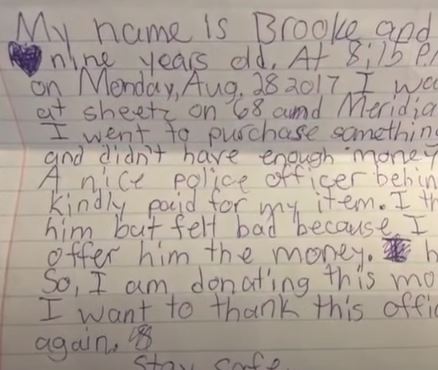 My name is Brooke and
nine years old. At 8:15 P.
on Monday, Aug. 28 2017 I
at sheetz on 68 amd
I went to purchase
and didn't have enough money
A nice police officer
kindly paid for my item. I
him but felt bad because I
offer him the money.
So, I am donating this
I want to thank this
again.
Stay safe